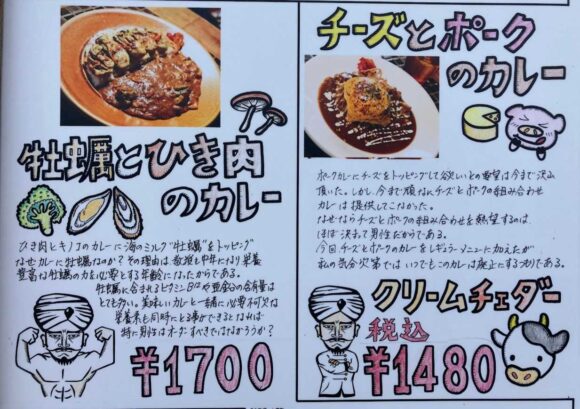 牡蠣とひき肉
のカレー
ひき肉とキノコのカレーに海のミルク"牡蠣"をトッピング
なぜカレーに牡蠣なのか？その理由は教祖も中年になり栄養
豊富な牡蠣の力を必要とする年齢になったからである。
牡蠣に含まれるビタミンB12や亜鉛の含有量は
とても多い。美味しいカレーと一緒に必要不可欠な
栄養素も同時にとる事ができるとなれば
特に男性はオーダーすべきではなかろうか？
¥1700
チーズとポーク
のカレー
ポークカレーにチーズをトッピングして欲しいとの要望は今まで沢山
頂いた。しかし、今まで頑なにチーズとポークの組み合わせ
カレーは提供してこなかった。
なぜならチーズとポークの組み合わせを熱望するのは
ほぼ決まって男性だからである。
今回チーズとポークのカレーをレギュラーメニューに加えたが
私の気分次第ではいつでもこのカレーは廃止にするつもりである。
クリームチェダー
税込
¥1480